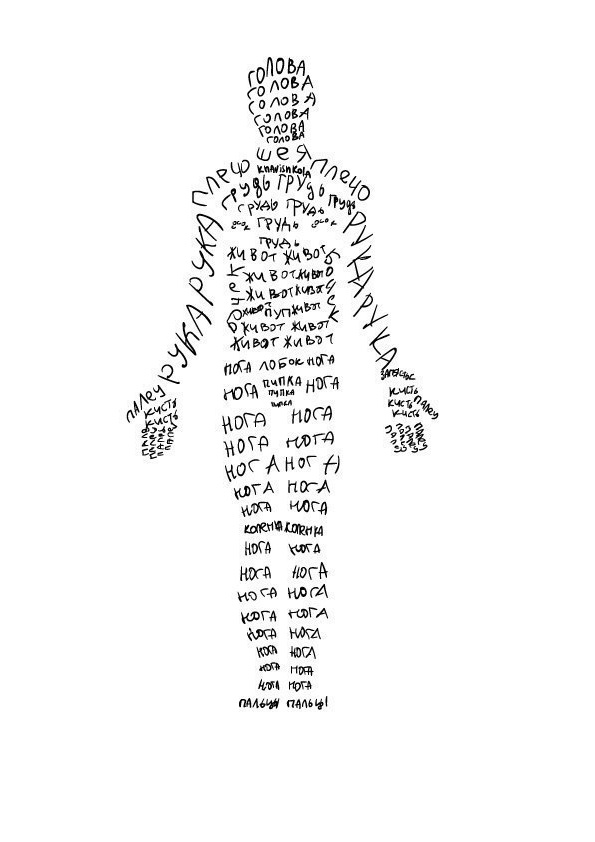 ГОЛОВА
ГОЛОВА
ГОЛОВА
ГОЛОВА
ГОЛОВА
ГОЛОВА
ШЕЯ
ПЛЕЧО ПЛЕЧО
ГРУДЬ ГРУДЬ
ГРУДЬ ГРУДЬ ГРУДЬ
ГРУДЬ
ГРУДЬ
РУКА РУКА
РУКА РУКА
ЖИВОТ ЖИВОТ
ЖИВОТ ЖИВОТ
ЖИВОТ ЖИВОТ
ЖИВОТ ПУП ЖИВОТ
ЖИВОТ ЖИВОТ
ЖИВОТ ЖИВОТ
НОГА ЛОБОК НОГА
НОГА ПИПКА НОГА
ПИПКА
ПИПКА
ЗАПЯСТЬЕ
ПАЛЕЦ КИСТЬ
КИСТЬ
КИСТЬ
КИСТЬ ПАЛЕЦ
КИСТЬ
ПАЛЕЦ ПАЛЕЦ ПАЛЕЦ ПАЛЕЦ
ПАЛЕЦ ПАЛЕЦ ПАЛЕЦ ПАЛЕЦ
НОГА НОГА
НОГА НОГА
НОГА НОГА
НОГА НОГА
НОГА НОГА
КОЛЕНКА КОЛЕНКА
НОГА НОГА
НОГА НОГА
НОГА НОГА
НОГА НОГА
НОГА НОГА
НОГА НОГА
НОГА НОГА
НОГА НОГА
ПАЛЬЦЫ ПАЛЬЦЫ